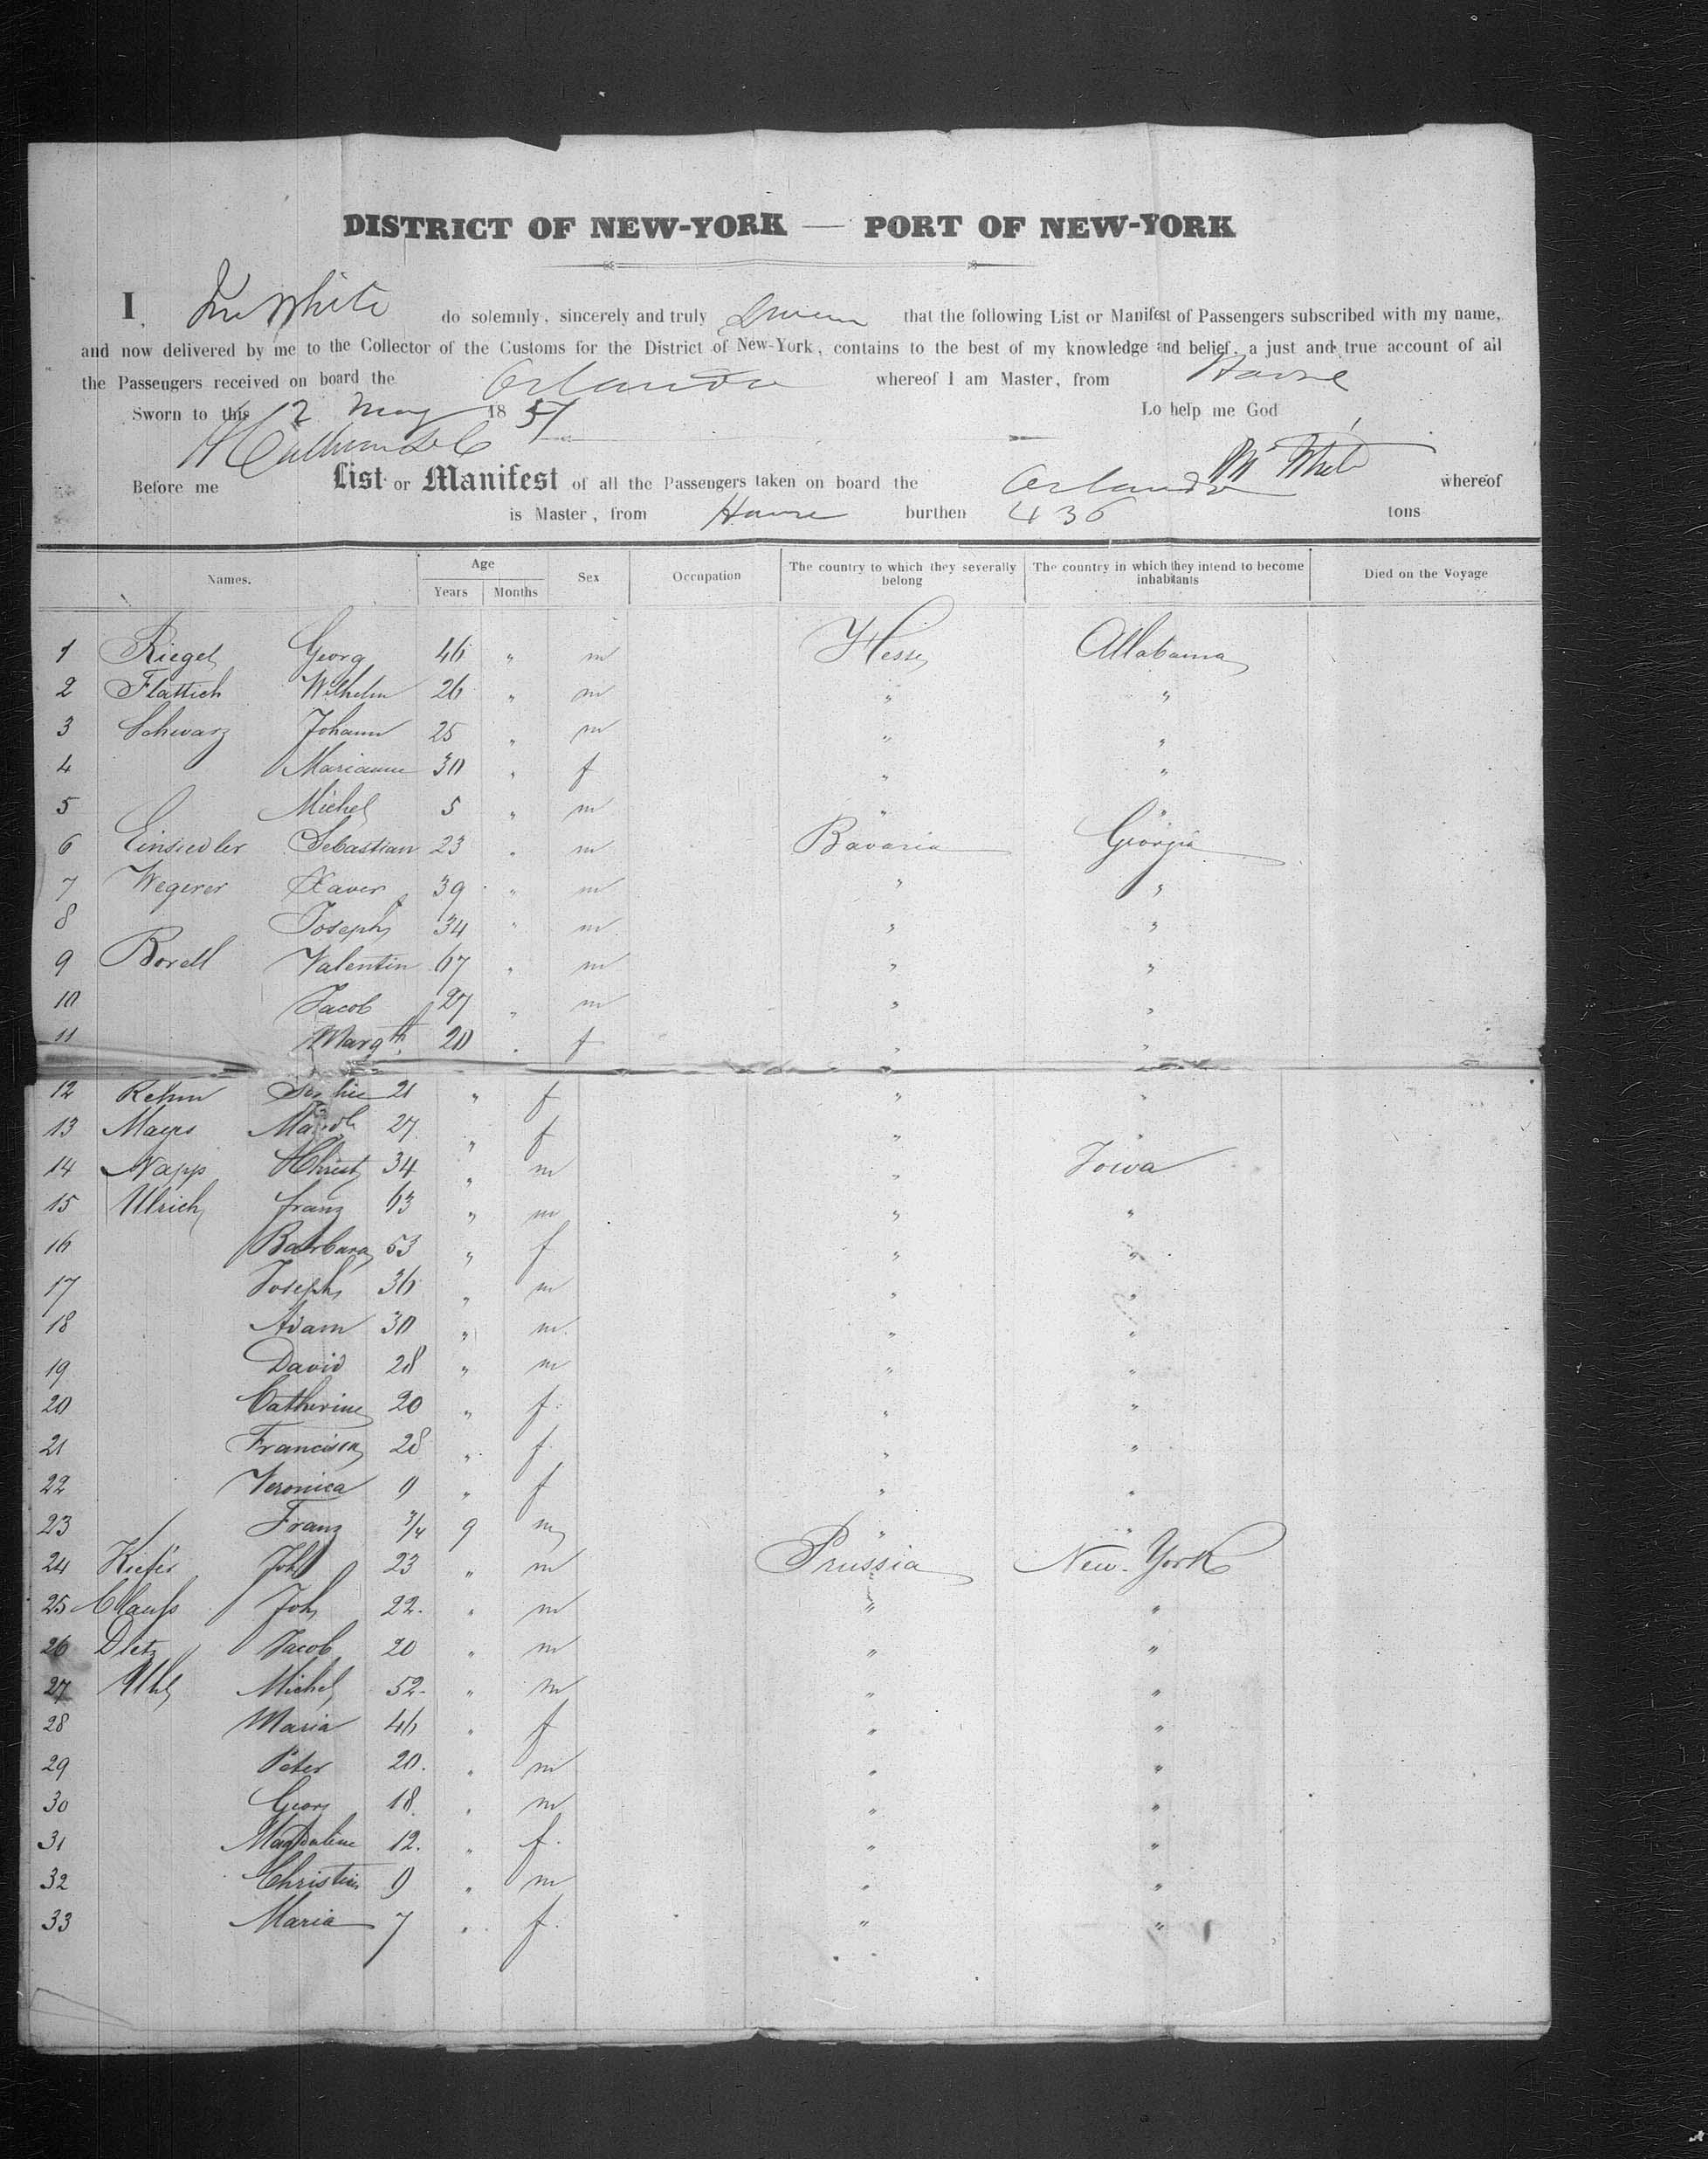 DISTRICT OF NEW-YORK — PORT OF NEW-YORK
I, Jno White do solemnly, sincerely and truly Swear that the following List or Manifest of Passengers subscribed with my name,
and now delivered by me to the Collector of the Customs for the District of New-York, contains to the best of my knowledge and belief, a just and true account of all
the Passengers received on board the Orlando whereof I am Master, from Havre
Sworn to this 2 May 1857 So help me God
White
Before me List or Manifest of all the Passengers taken on board the Orlando whereof
is Master, from Havre burthen 436 tons
Names. Age Years Months Sex Occupation The country to which they severally belong The country in which they intend to become inhabitants Died on the Voyage
1 Riegel Georg 46 " m Hesse Allabama
2 Flattich Wilhelm 26 " m " "
3 Schwarz Johann 25 " m " "
4 Marianne 30 " f " "
5 Michel 5 " m " "
6 Einsiedler Sebastian 23 " m Bavaria Giorgia
7 Wegerer Xaver 39 " m " "
8 Joseph 34 " m " "
9 Borell Valentin 67 " m " "
10 Jacob 27 " m " "
11 Margth 20 " f " "
12 Rehm Sophie 21 " f " "
13 Mayrs 27 " f " "
14 Napp Christ 34 " m " Iowa
15 Ulrich franz 63 " m " "
16 Barbara 53 " f " "
17 Joseph 36 " m " "
18 Adam 30 " m " "
19 David 28 " m " "
20 Catherine 20 " f " "
21 Francisca 28 " f " "
22 Veronica 9 " f " "
23 Franz 3/4 9 m " "
24 Kiefer Joh 23 " m Prussia New-York
25 Clauss Joh 22 " m " "
26 Dietz Jacob 20 " m " "
27 Uhl Michel 52 " m " "
28 Maria 46 " f " "
29 Peter 20 " m " "
30 Georg 18 " m " "
31 Magdaline 12 " f " "
32 Christian 9 " m " "
33 Maria 7 " f " "